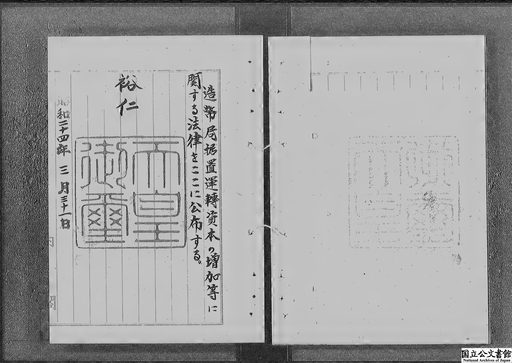 造幣局据置運轉資本の増加等に
関する法律をここに公布する。
裕仁
天皇
御璽
昭和二十四年三月三十一日
国立公文書館
National Archives of Japan